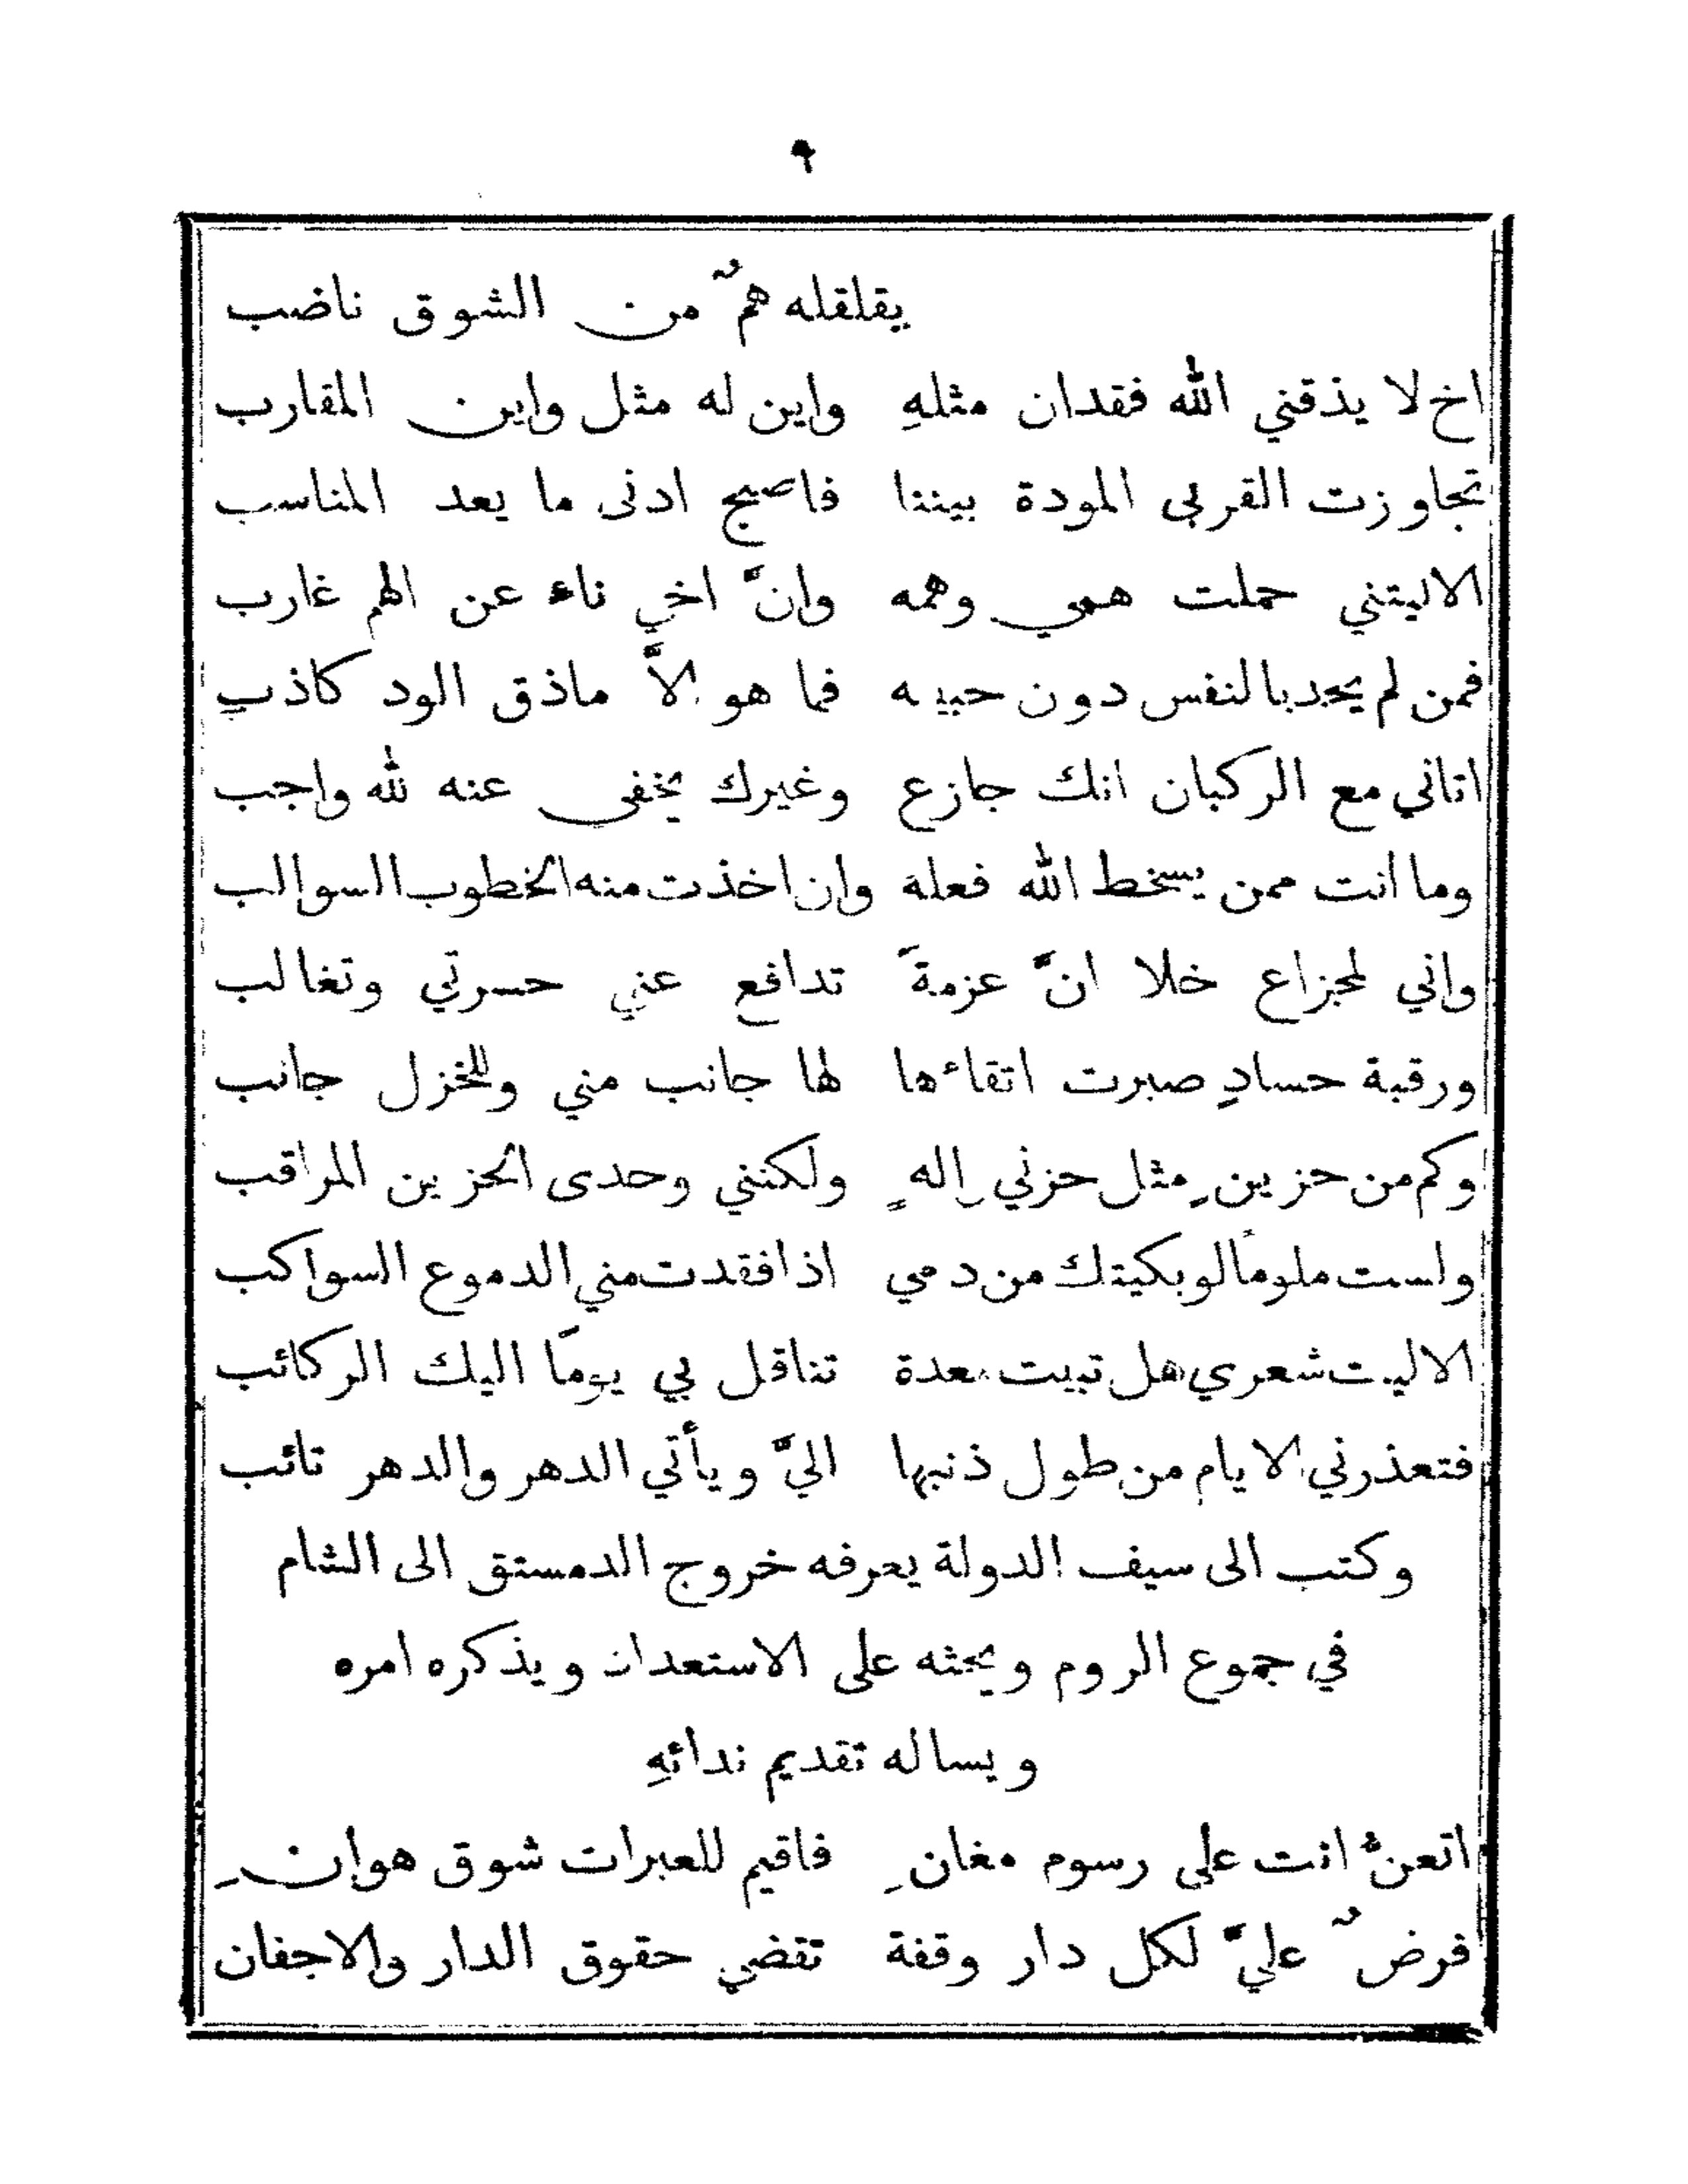 ٩
يقلقله همٌ من الشوق ناضب
اخ لا يذقني الله فقدان مثلهِ واين له مثل واين المقارب
تجاوزت القربى المودة بيننا فاصبح ادنى ما يعد المناسب
الاليتني حملت همي وهمه وانَّ اخي ناء عن الهم غارب
فمن لم يجد بالنفس دون حبيبه فما هو الاَّ ماذق الود كاذب
اتاني مع الركبان انك جازع وغيرك يخفى عنه لله واجب
وما انت ممن يسخط الله فعله وان اخذت منه الخطوب السوالب
واني لمجزاع خلا انَّ عزمةً تدافع عني حسرتي وتغالب
ورقبة حسادٍ صبرت اتقاءها لها جانب مني وللخزل جانب
وكم من حزينٍ مثل حزني والهٍ ولكنني وحدى الحزين المراقب
ولست ملوماً لو بكيتك من دمي اذا فقدت مني الدموع السواكب
الاليت شعري هل تبيت معدة تناقل بي يوماً اليك الركائب
فتعذرني الايام من طول ذنبها اليَّ ويأتي الدهر والدهر تائب
وكتب الى سيف الدولة يعرفه خروج الدمستق الى الشام
في جموع الروم ويحثه على الاستعداد ويذكره امره
ويساله تقديم ندائهِ
اتعزُّ انت على رسوم مغانٍ فاقيم للعبرات شوق هوانِ
فرضٌ عليَّ لكل دار وقفة تقضي حقوق الدار والاجفان